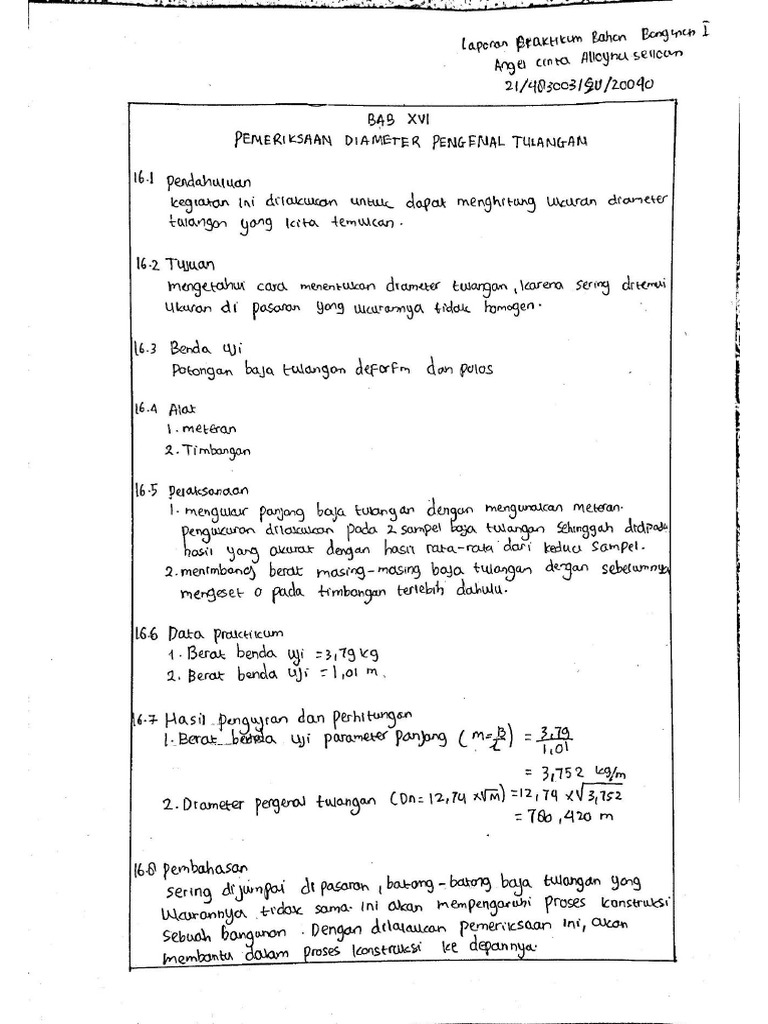 Laporan Praktikum Bahan Bangunan I
Angel cinta Alleynu selican
21/483003/SV/20090
BAB XVI
PEMERIKSAAN DIAMETER PENGENAL TULANGAN
16.1 Pendahuluan
kegiatan ini dilakukan untuk dapat menghitung ukuran diameter
tulangan yang kita temukan.
16.2 Tujuan
mengetahui cara menentukan diameter tulangan, karena sering ditemui
ukuran di pasaran yang ukurannya tidak homogen.
16.3 Benda uji
Potongan baja tulangan deform dan polos
16.4 Alat
1. meteran
2. Timbangan
16.5 Pelaksanaan
1. mengukur panjang baja tulangan dengan mengunakan meteran.
pengukuran dilakukan pada 2 sampel baja tulangan sehinggah didpada
hasil yang akurat dengan hasil rata-rata dari kedua sampel.
2. menimbang berat masing-masing baja tulangan dengan sebelumnya
mengeset 0 pada timbangan terlebih dahulu.
16.6 Data praktikum
1. Berat benda uji = 3,79 kg
2. Berat benda uji = 1,01 m.
16.7 Hasil pengujian dan perhitungan
1. Berat benda uji parameter panjang (M = B/L) = 3,79/1,01
= 3,752 kg/m
2. Diameter pergenal tulangan (Dn = 12,74 x √M) = 12,74 x √3,752
= 780,420 m
16.8 Pembahasan
sering dijumpai di pasaran, batang-batang baja tulangan yang
ukurannya tidak sama. ini akan mempengaruhi proses konstruksi
sebuah bangunan. Dengan dilakukan pemeriksaan ini, akan
membantu dalam proses konstruksi ke depannya.